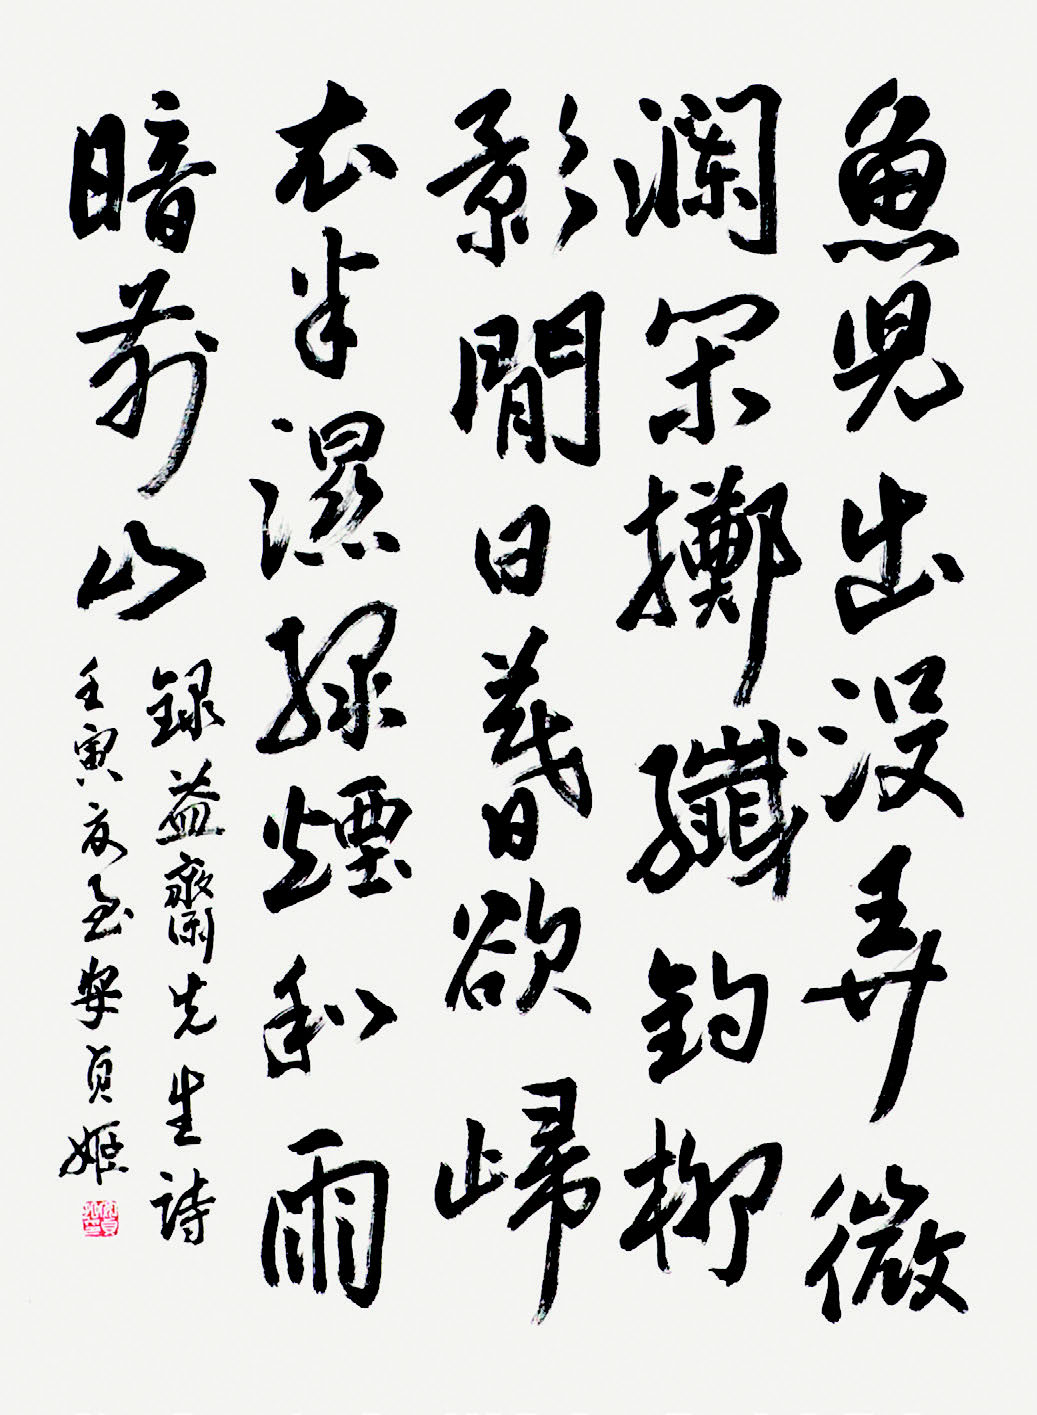 魚兒出沒弄微
瀾閑擲纖鉤柳
影閒日暮欲歸
衣半濕綠煙和雨
暗前山
錄益齋先生詩
壬寅夏至 貞姬